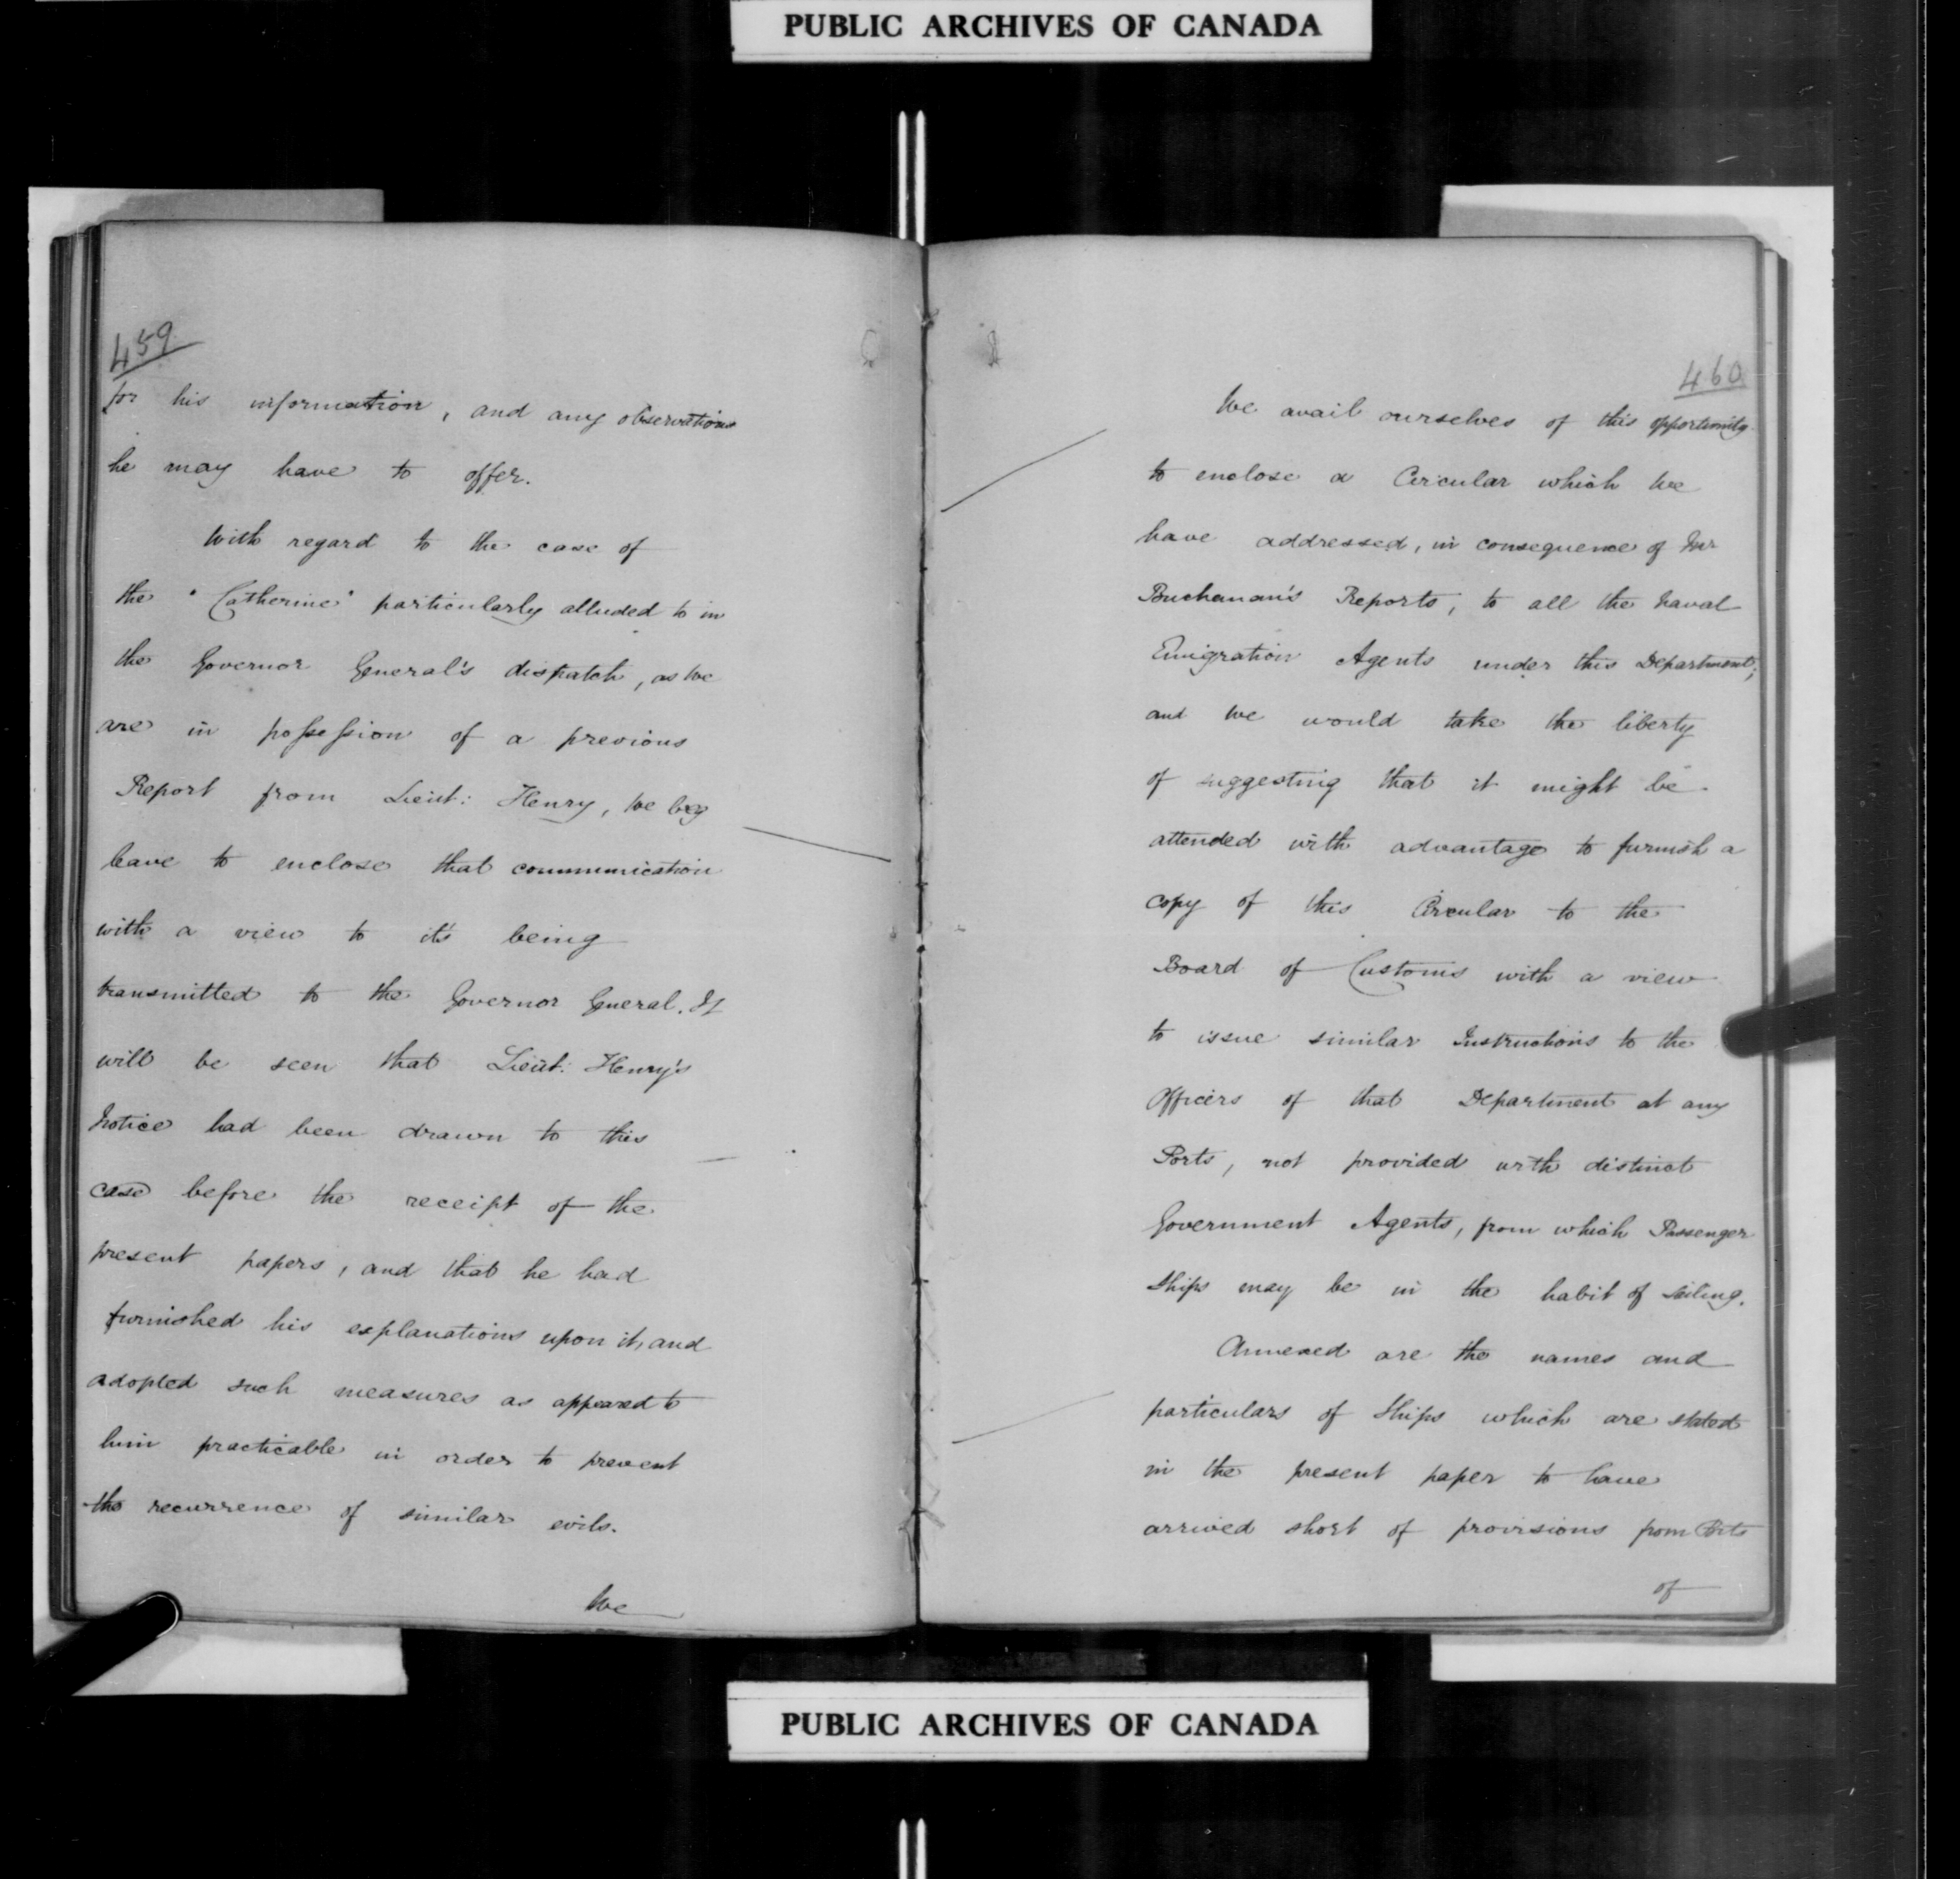 PUBLIC ARCHIVES OF CANADA
459
for his information, and any observations
he may have to offer.
With regard to the case of
the "Catherine" particularly alluded to in
the Governor General's dispatch, as we
are in possession of a previous
Report from Lieut: Henry, we beg
leave to enclose that communication
with a view to it's being
transmitted to the Governor General. It
will be seen that Lieut: Henry's
Notice had been drawn to this
case before the receipt of the
present papers, and that he had
furnished his explanations upon it, and
adopted such measures as appeared to
him practicable in order to prevent
the recurrence of similar evils.
We
460
We avail ourselves of this opportunity
to enclose a Circular which we
have addressed, in consequence of Mr
Buchanan's Reports, to all the Naval
Emigration Agents under this Department;
and we would take the liberty
of suggesting that it might be
attended with advantage to furnish a
copy of this Circular to the
Board of Customs with a view
to issue similar Instructions to the
Officers of that Department at any
Ports, not provided with distinct
Government Agents, from which Passenger
Ships may be in the habit of sailing.
Annexed are the names and
particulars of Ships which are stated
in the present paper to have
arrived short of provisions from Ports
of
PUBLIC ARCHIVES OF CANADA